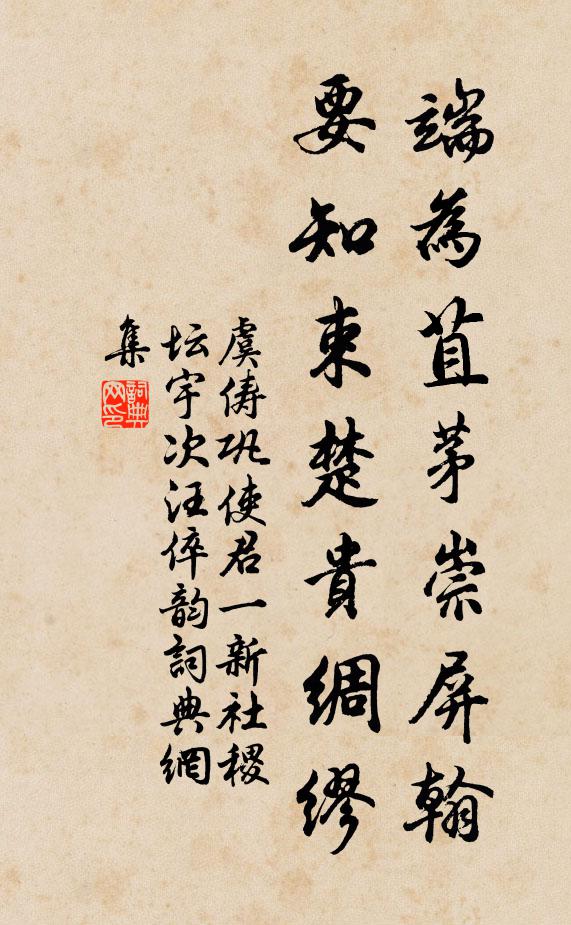 端為苴茅崇屏翰
要知束楚貴綢繆
虞儔巩使君一新社稷
坛宇次汪倅韵詞典網
集
詞典網印